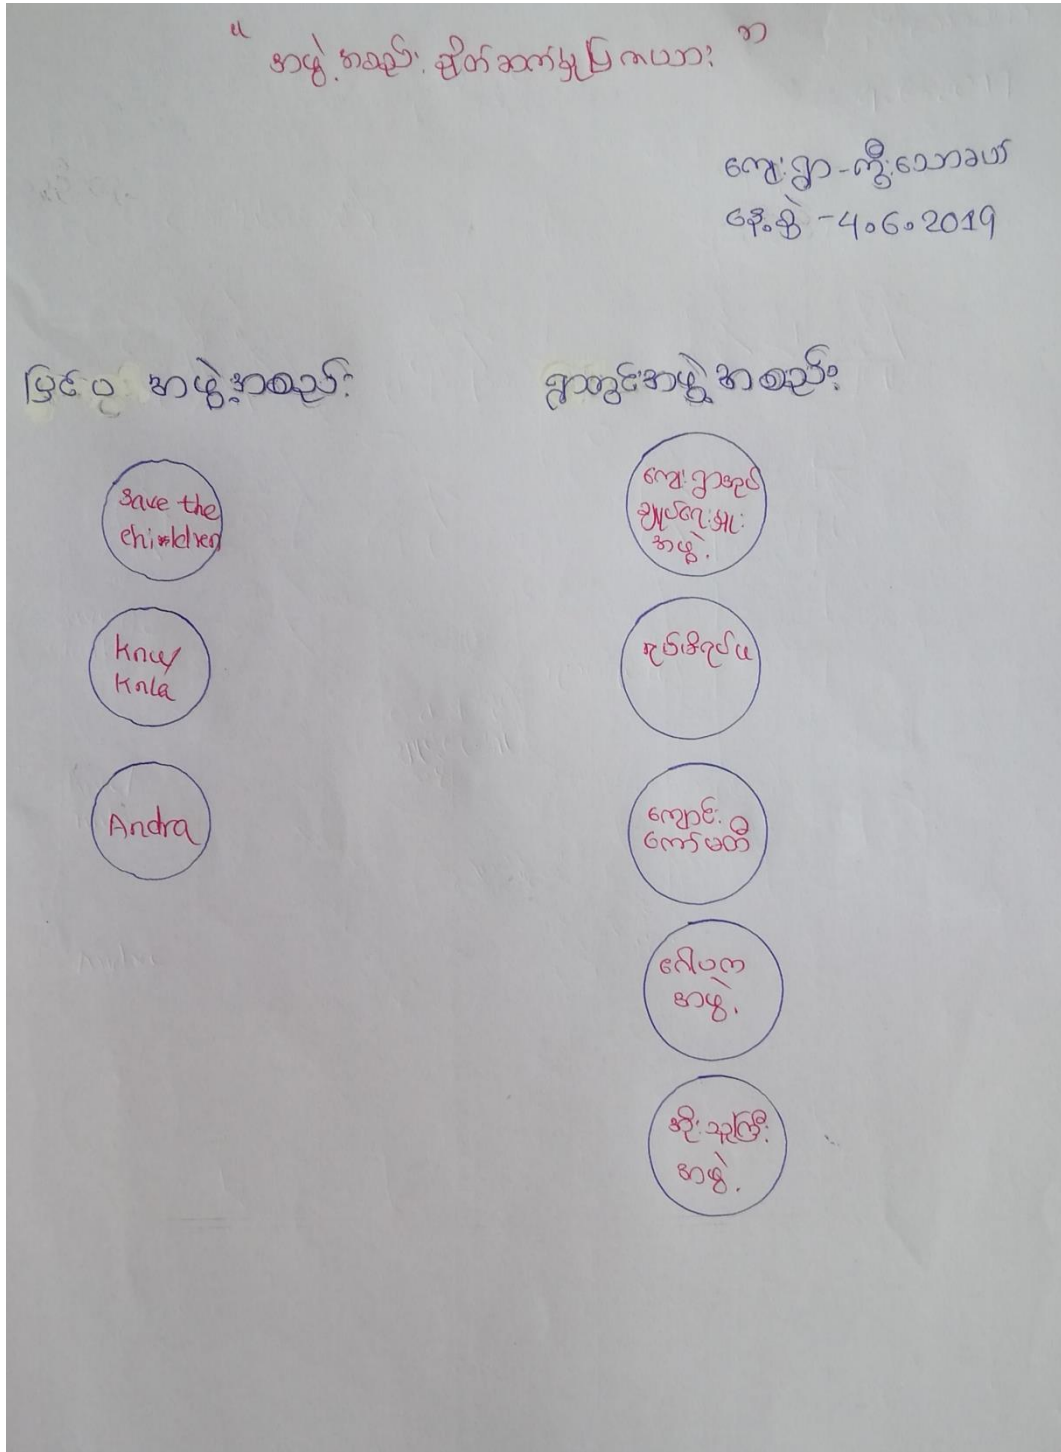 " အဖွဲ့အစည်း ချိတ်ဆက်မှုပြကားချား "
ကျေးရွာ-ကွီးသောခဟ်
နေ့စွဲ -4.6.2019
ပြင်ပ အဖွဲ့အစည်း
ရွာတွင်းအဖွဲ့အစည်း
Save the
Children
Knu/
Knla
Andra
ကျေးရွာအုပ်
ချုပ်ရေးမှူး
အဖွဲ့
ရပ်မိရပ်ဖ
ကျောင်း
ကော်မတီ
ဂေါပက
အဖွဲ့
အိုးသူကြီး
အဖွဲ့